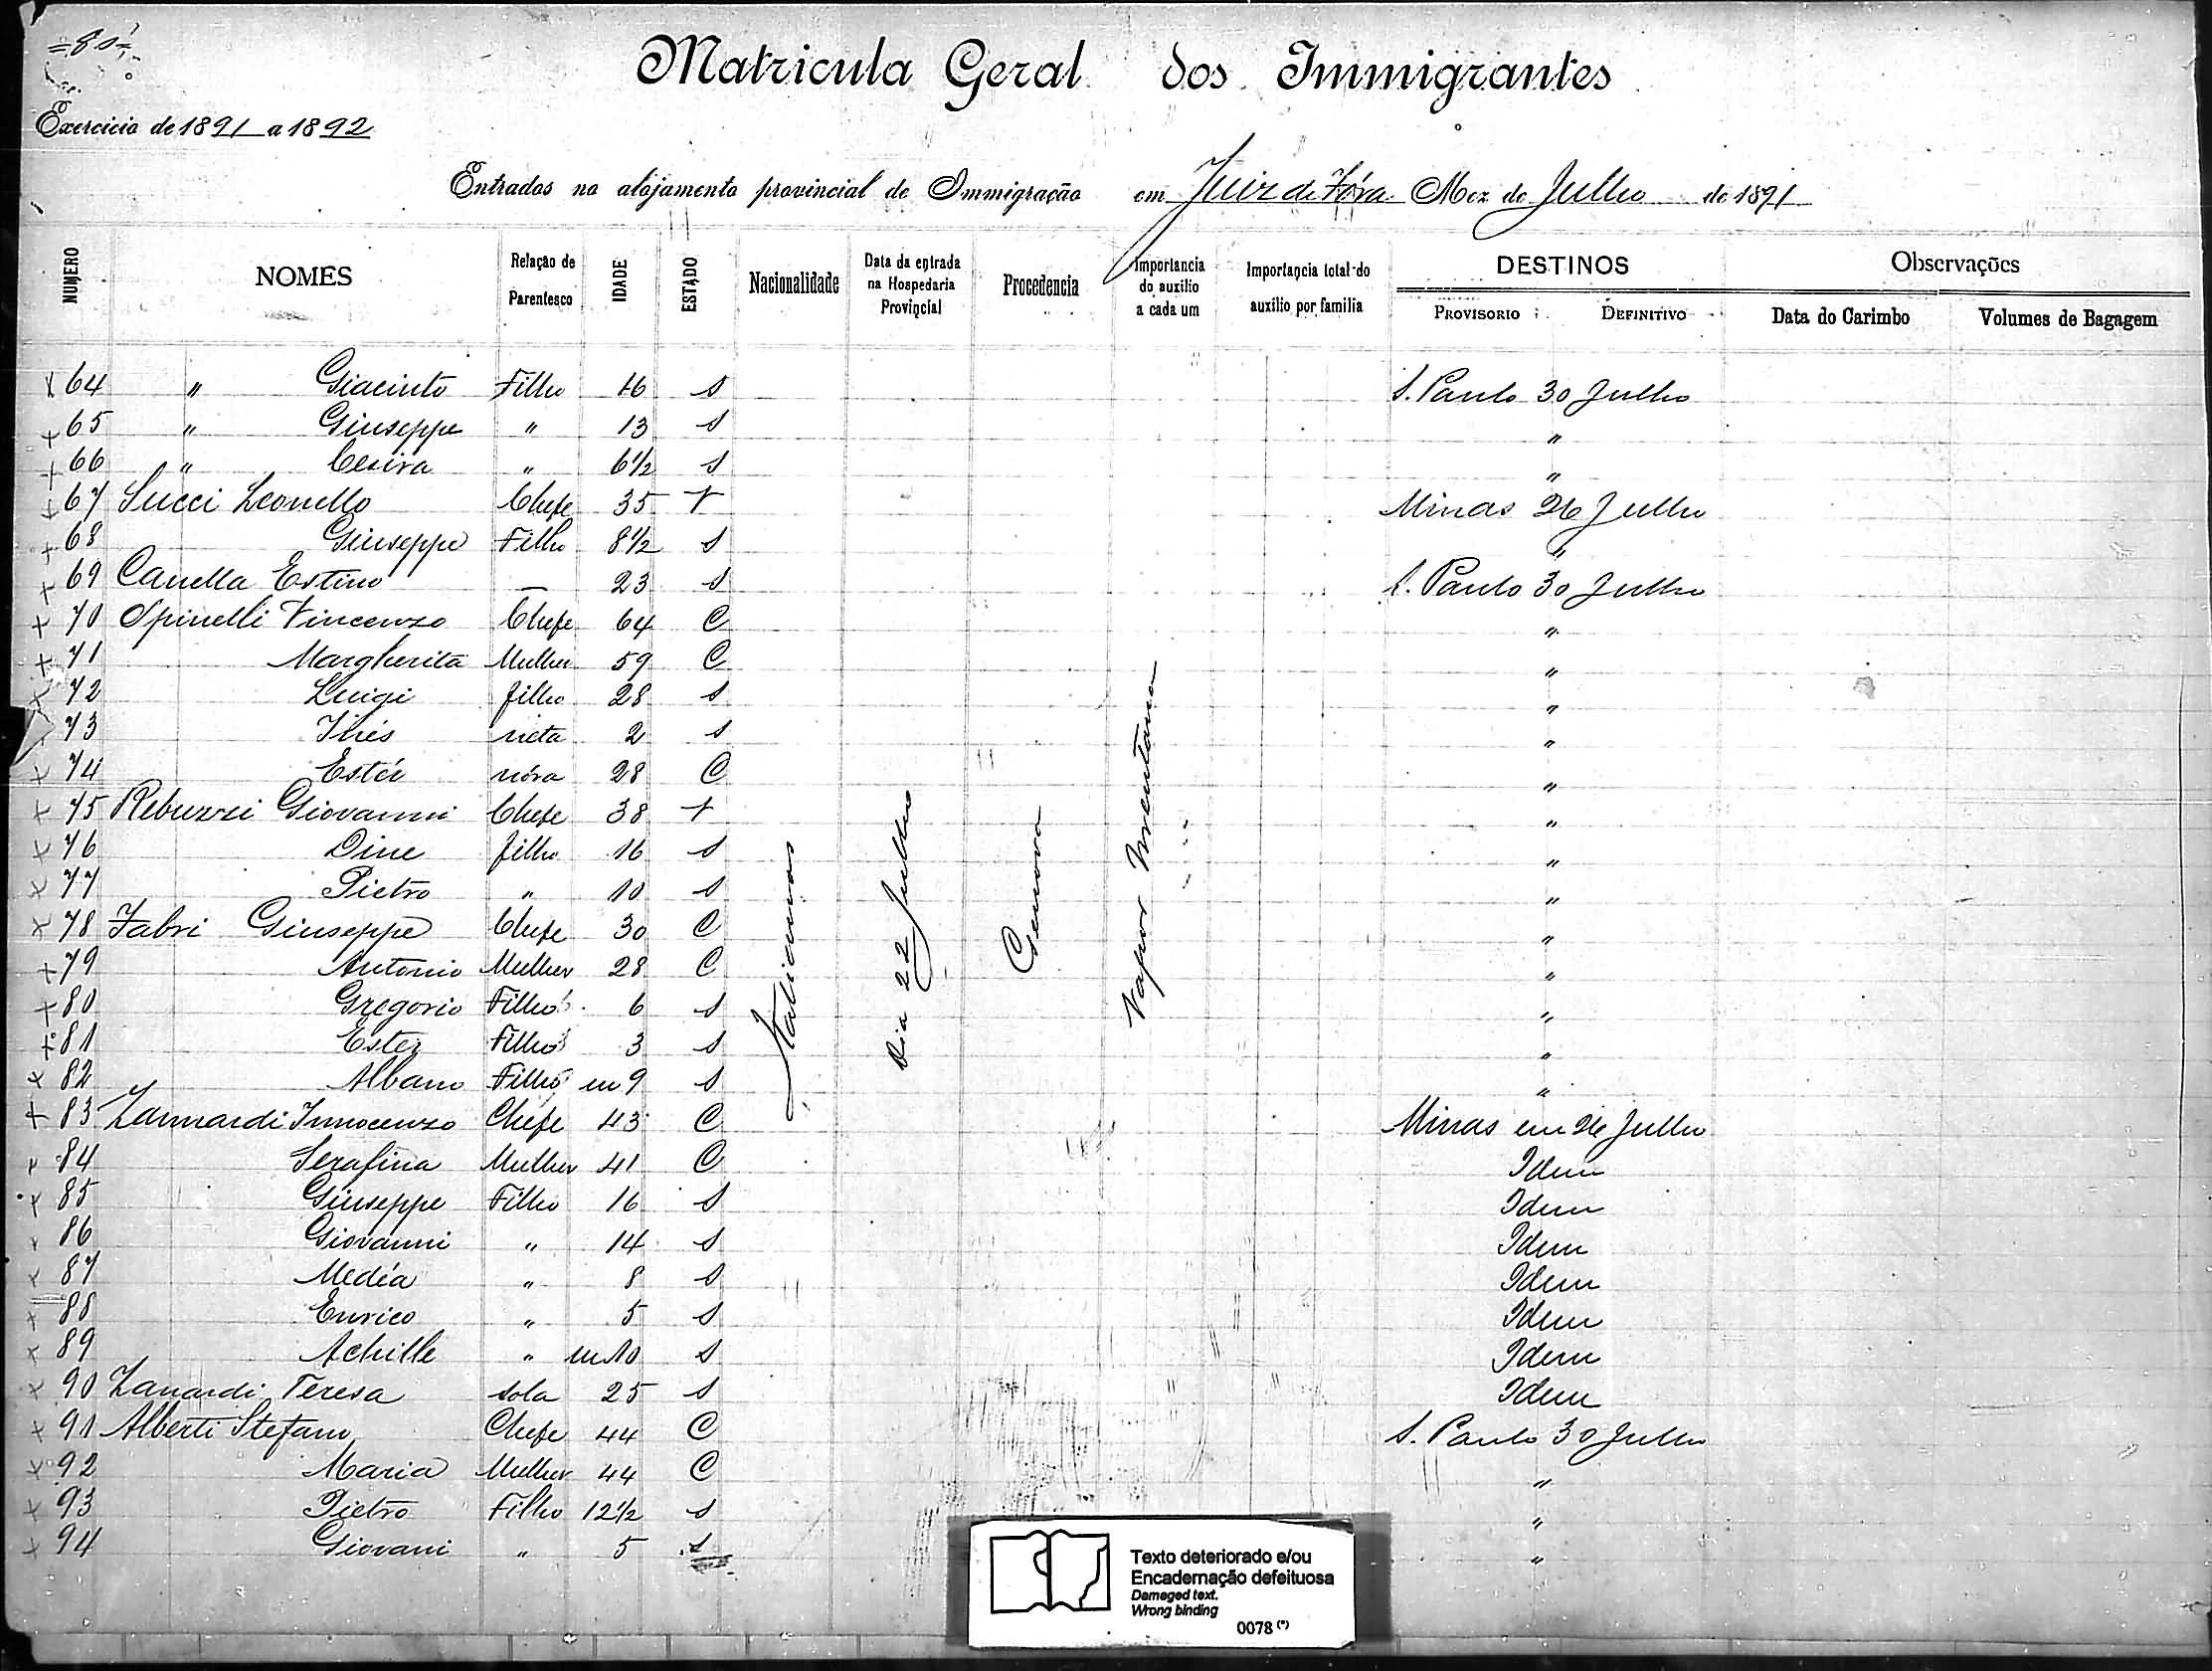 =80=
Matricula Geral dos Immigrantes
Exercicio de 1891 a 1892
Entrados no alojamento provincial de Immigração em Juiz de Fóra Mez de Julho de 1891
NUMERO NOMES Relação de Parentesco IDADE ESTADO Nacionalidade Data da entrada na Hospedaria Provincial Procedencia Importancia do auxilio a cada um Importancia total do auxilio por familia DESTINOS PROVISORIO DEFINITIVO Observações Data do Carimbo Volumes de Bagagem
x 64 " Giacinto Filho 16 S S. Paulo 30 Julho
+ 65 " Giuseppe " 13 S "
+ 66 " Cesira " 6 1/2 S "
+ 67 Succi Leonello Chefe 35 V Minas 26 Julho
+ 68 Giuseppe Filho 8 1/2 S "
+ 69 Canella Estino — 23 S S. Paulo 30 Julho
+ 70 Spinelli Vincenzo Chefe 64 C "
+ 71 Margherita Mulher 59 C "
x 72 Luigi filho 28 S "
73 Inés neta 2 S "
x 74 Estér nóra 28 C "
x 75 Rebuzzi Giovanni Chefe 38 V "
x 76 Dine filho 16 S "
x 77 Pietro " 10 S "
x 78 Fabri Giuseppe Chefe 30 C "
+ 79 Antonio Mulher 28 C "
+ 80 Gregorio Filho 6 S "
+ 81 Ester Filho 3 S "
x 82 Albano Filho m 9 S "
+ 83 Zannardi Innocenzo Chefe 43 C Minas em 26 Julho
x 84 Serafina Mulher 41 C Idem
x 85 Giuseppe Filho 16 S Idem
x 86 Giovanni " 14 S Idem
x 87 Medéa " 8 S Idem
x 88 Enrico " 5 S Idem
x 89 Achille " m 10 S Idem
x 90 Zanardi Teresa sola 25 S Idem
x 91 Alberti Stefano Chefe 44 C S. Paulo 30 Julho
x 92 Maria Mulher 44 C "
x 93 Pietro Filho 12 1/2 S "
x 94 Giovani " 5 S "
Italianos
Dia 22 Julho
Genova
Vapor Mentana
Texto deteriorado e/ou
Encadernação defeituosa
Dameged text.
Wrong binding
0078 (*)